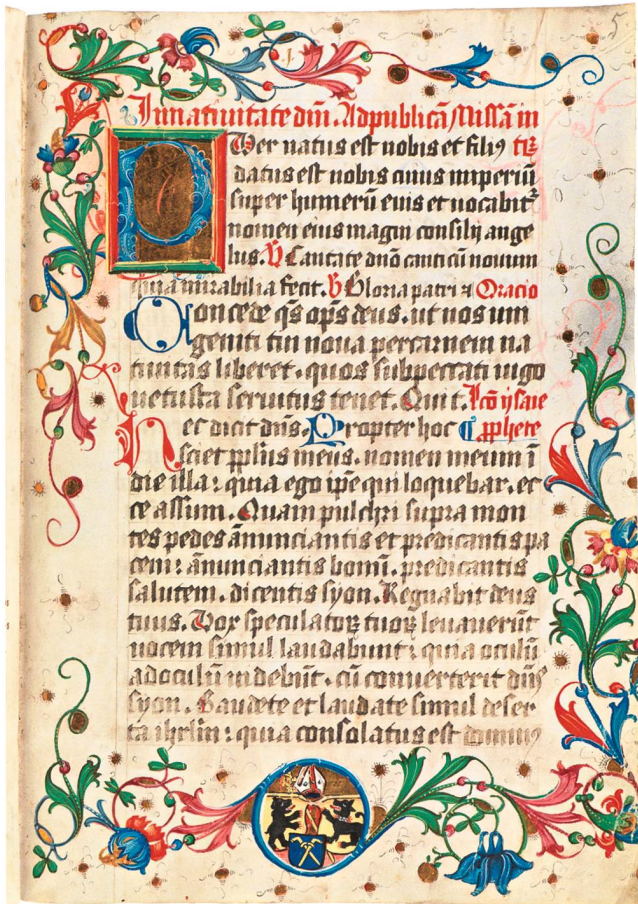 5
In natiuitate dñi. Ad publicã Missã in
Puer natus est nobis et filiꝰ
datus est nobis cuius imperiũ
super humerũ eius et uocabit̃
nomen eius magni consilij ange
lus. V Cantate dño canticũ nouum
quia mirabilia fecit. V Gloria patri Oracio
Concede qs̃ op̃s deus. ut nos um
geniti tui noua per carnem na
tiuitas liberet. quos sub peccati iugo
uetusta seruitus tenet. Qui t. Lcõ ysaie
Hec dicit dñs. Propter hoc pphete
sciet pplus meus. nomen meum ĩ
die illa: quia ego ip̃e qui loquebar. ec
ce assum. Quam pulchri supra mon
tes pedes ãnunciantis et predicantis pa
cem: ãnunciantis bonũ. predicantis
salutem. dicentis syon. Regnabit deus
tuus. Vox speculatoꝝ tuoꝝ leuauerũt
uocem simul laudabunt: quia oculũ
ad oculũ uidebũt. cũ conuerterit dñs
syon. Gaudete et laudate simul deser
ta ihrlm̃: quia consolatus est dominꝰ